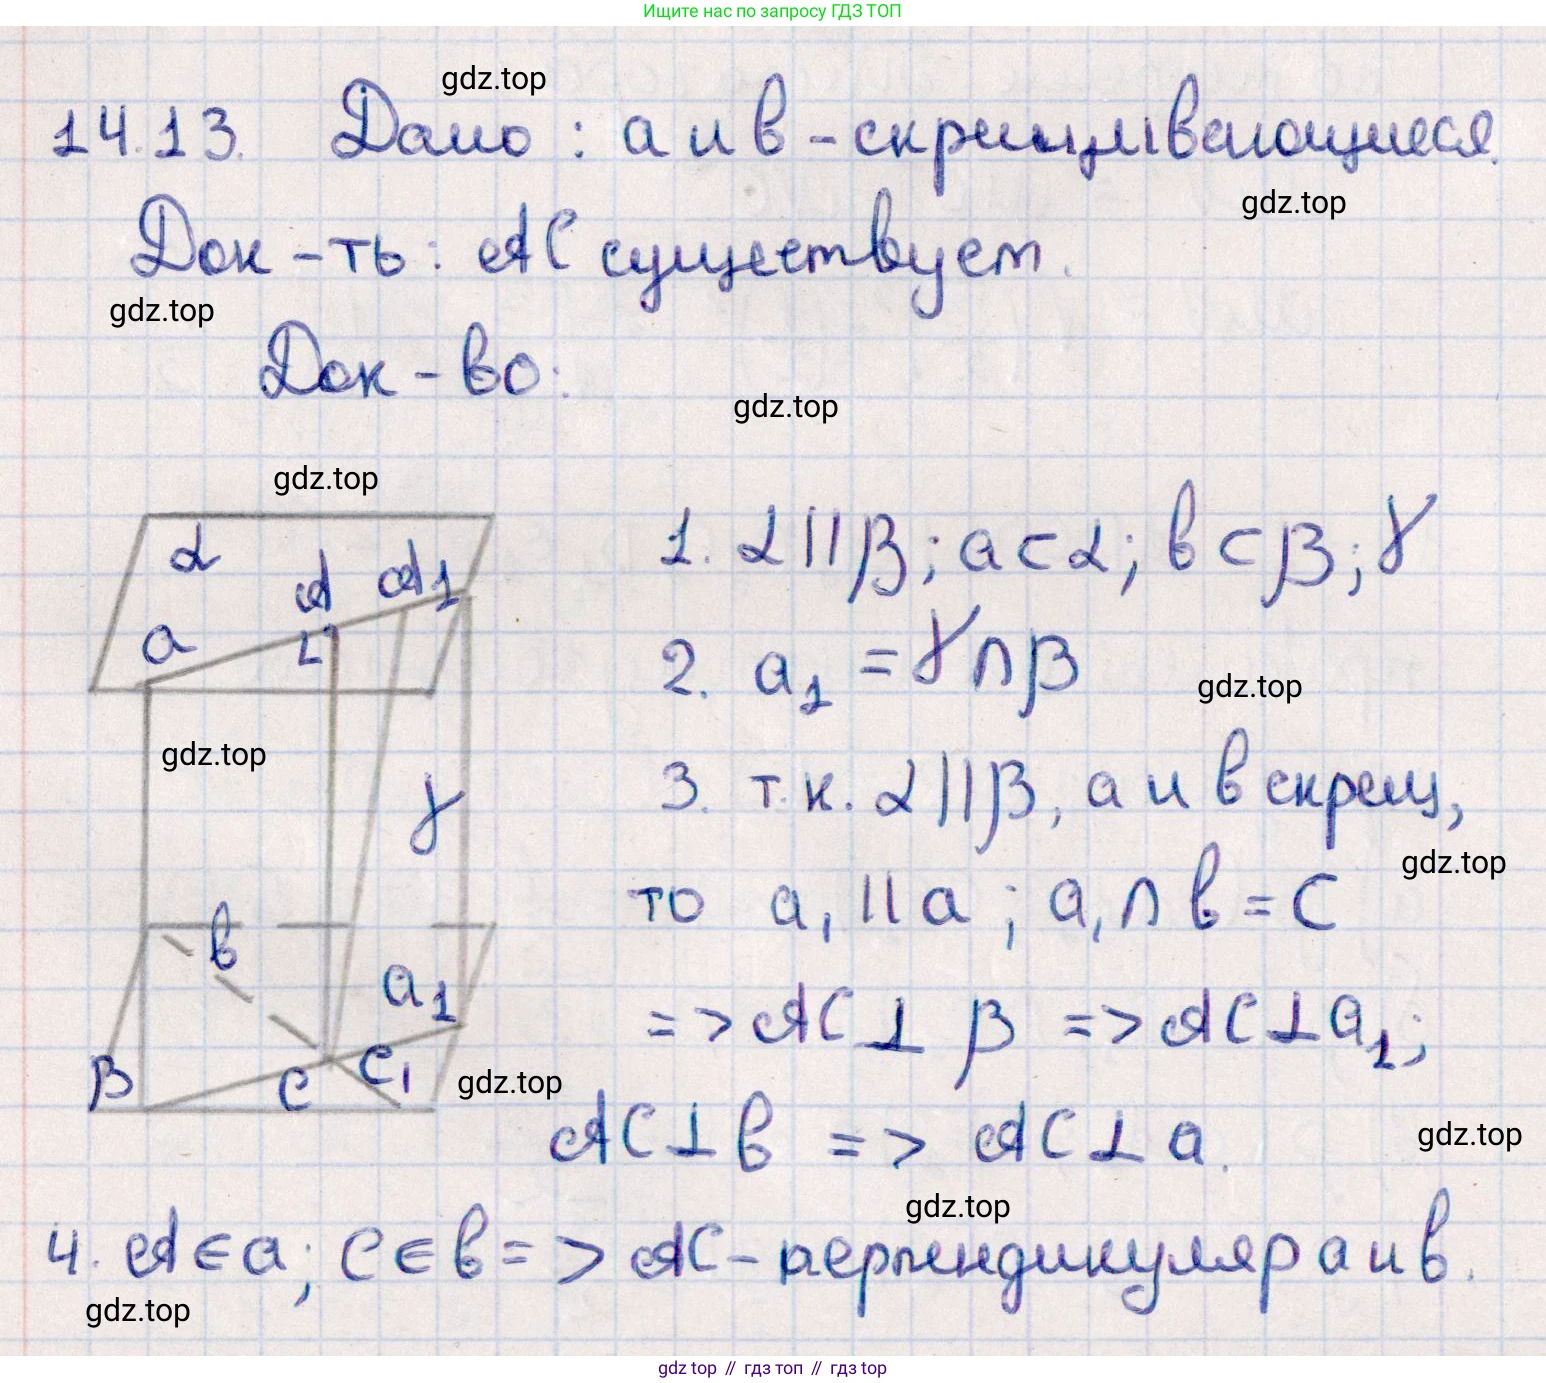 Ищите нас по запросу ГДЗ ТОП
gdz.top
14.13. Дано: a и b - скрещивающиеся.
gdz.top
Док-ть: AC существует.
gdz.top
Док-во:
gdz.top
gdz.top
α A A1
a
gdz.top
γ
b
a1
β C C1
gdz.top
1. α || β; a ⊂ α; b ⊂ β; γ
2. a1 = γ ∩ β
gdz.top
3. т.к. α || β, a и b скрещ,
gdz.top
то a1 || a; a1 ∩ b = C
=> AC ⊥ β => AC ⊥ a1;
AC ⊥ b => AC ⊥ a.
gdz.top
gdz.top
4. A ∈ a; C ∈ b => AC - перпендикуляр a и b.
gdz.top
gdz top // гдз топ // gdz top